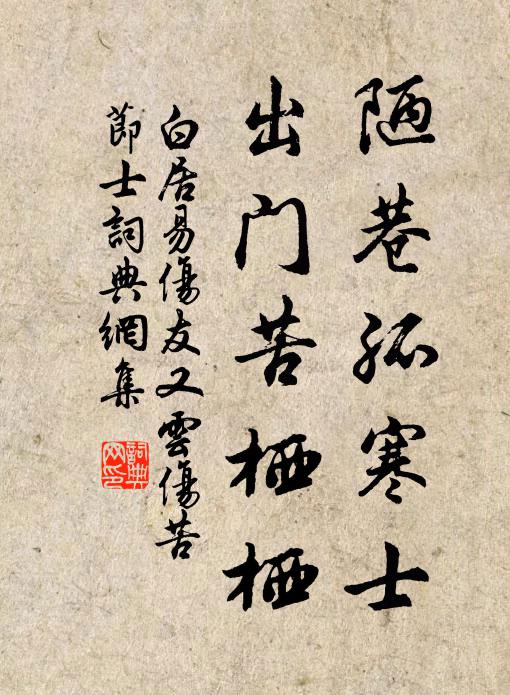 陋巷孤寒士
出門苦栖栖
白居易傷友又雲傷苦
節士詞典網集
詞典
网印